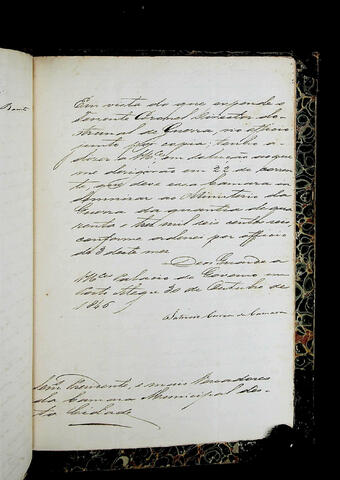 Em vista do que expende o
Tenente Coronel Director do Ar-
senal de Guerra, no officio
junto por copia, tenho a
dizer a Vmces em solução ao que
me dirigirão em 22 do corren-
te, que deve essa Camara in-
demnisar ao Ministerio da
Guerra da quantia de qua-
renta e tres mil seis centos reis
conforme ordenei por officio
de 3 deste mez
Deos Guarde a
Vmces Palacio do Governo em
Porto Alegre 30 de Outubro de
1846
Patricio Correa da Camara
Snres Presidente, e mais Vereadores
da Camara Municipal des-
ta Cidade